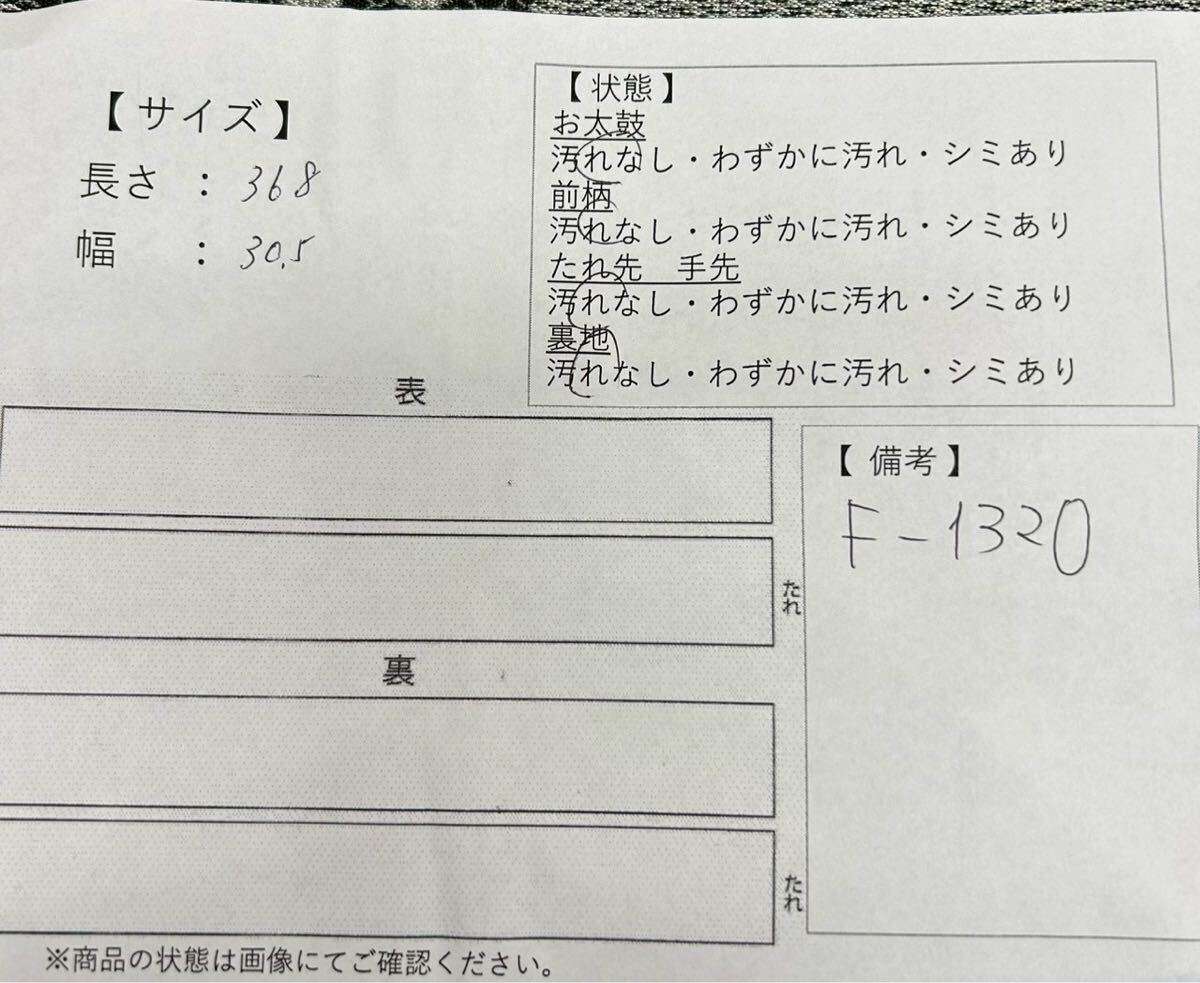 【 サイズ 】
長さ : 368
幅 : 30.5
【 状態 】
お太鼓
汚れなし・わずかに汚れ・シミあり
前柄
汚れなし・わずかに汚れ・シミあり
たれ先 手先
汚れなし・わずかに汚れ・シミあり
裏地
汚れなし・わずかに汚れ・シミあり
表
たれ
裏
たれ
【 備考 】
F-1320
※商品の状態は画像にてご確認ください。